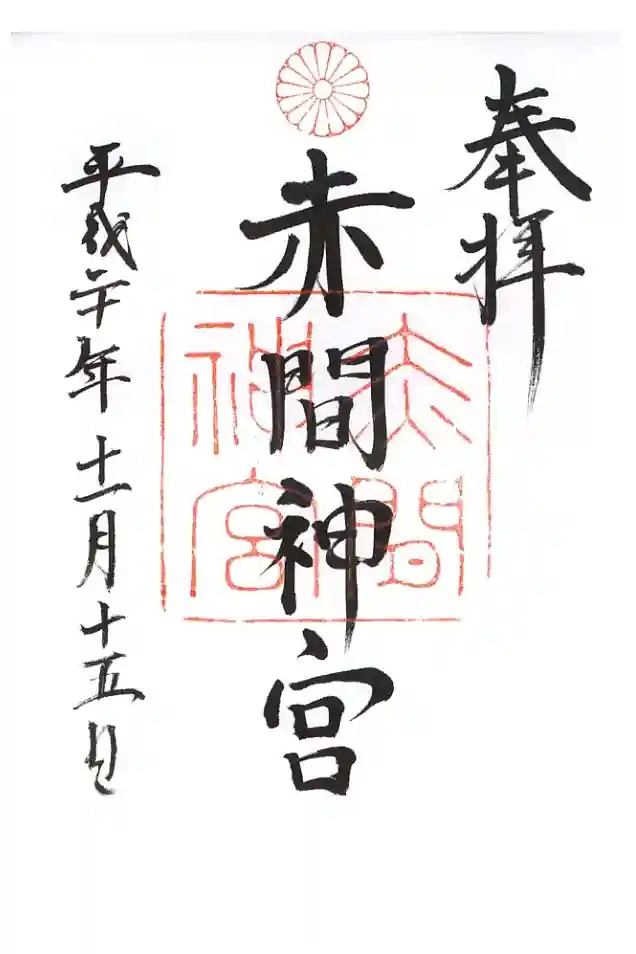 奉拝
赤間神宮
赤間神宮
平成二十年十一月十五日